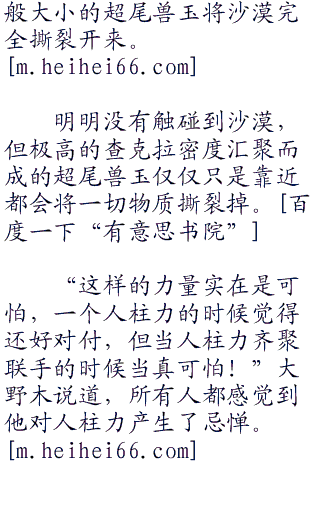 般大小的超尾兽玉将沙漠完
全撕裂开来。
[m.heihei66.com]
明明没有触碰到沙漠，
但极高的查克拉密度汇聚而
成的超尾兽玉仅仅只是靠近
都会将一切物质撕裂掉。[百
度一下“有意思书院”]
“这样的力量实在是可
怕，一个人柱力的时候觉得
还好对付，但当人柱力齐聚
联手的时候当真可怕！”大
野木说道，所有人都感觉到
他对人柱力产生了忌惮。
[m.heihei66.com]